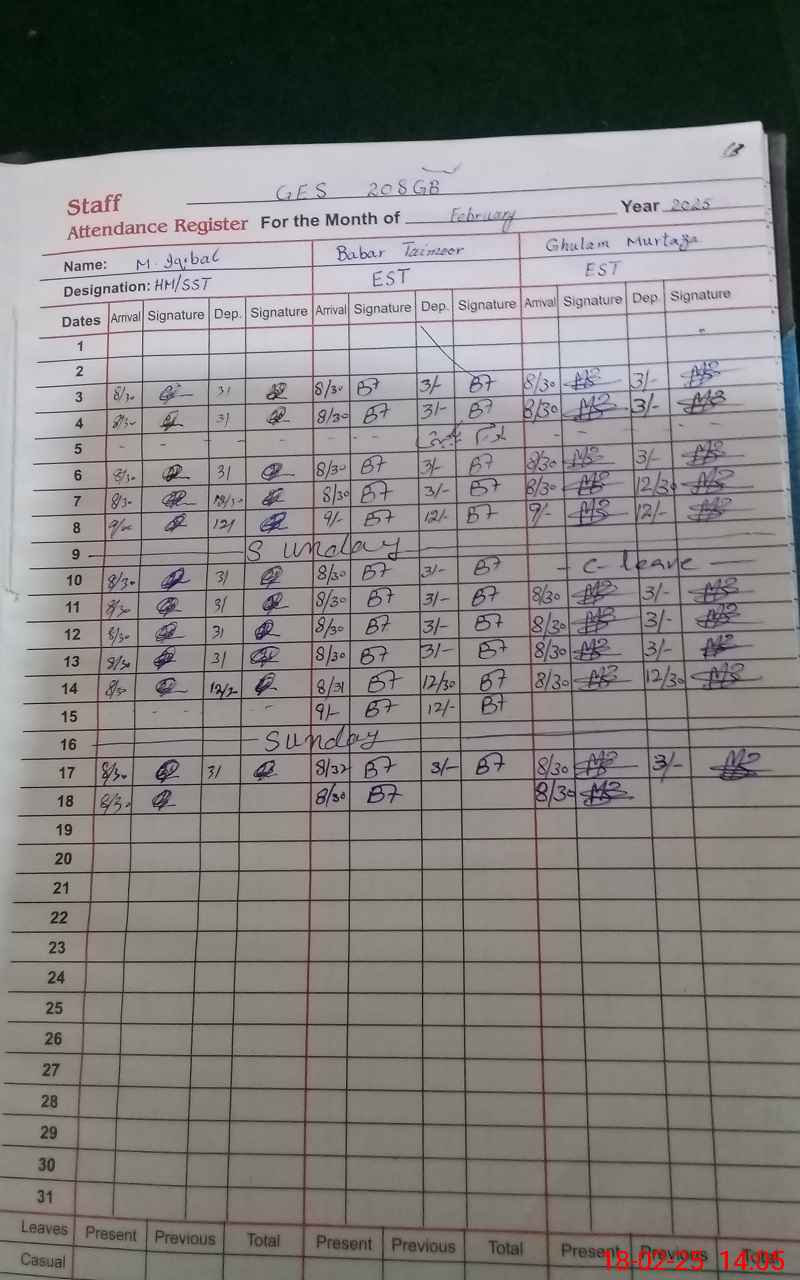 GES 208GB
Staff
Attendance Register For the Month of February Year 2025
Name: M. Iqbal Babar Taimoor Ghulam Murtaza
Designation: HM/SST EST EST
Dates Arrival Signature Dep. Signature Arrival Signature Dep. Signature Arrival Signature Dep. Signature
1
2
3 8/30 3/ 8/30 B7 3/- B7 8/30 3/-
4 8/30 3/ 8/30 B7 3/- B7 8/30 3/-
5 - - - - - - - - -
6 8/30 3/ 8/30 B7 3/- B7 8/30 3/-
7 8/30 8/30 B7 3/- B7 8/30 12/30
8 12/ 9/- B7 12/- B7 9/- 12/-
9 Sunday
10 8/30 3/ 8/30 B7 3/- B7 - C-leave -
11 8/30 3/ 8/30 B7 3/- B7 8/30 3/-
12 8/30 3/ 8/30 B7 3/- B7 8/30 3/-
13 8/30 3/ 8/30 B7 3/- B7 8/30 3/-
14 8/30 8/31 B7 12/30 B7 8/30 12/30
15 - - - - 9/- B7 12/- B7
16 Sunday
17 8/30 3/ 8/32 B7 3/- B7 8/30 3/-
18 8/30 8/30 B7 8/30
19
20
21
22
23
24
25
26
27
28
29
30
31
Leaves Present Previous Total Present Previous Total Present Previous Total
Casual
18-02-25 14:05